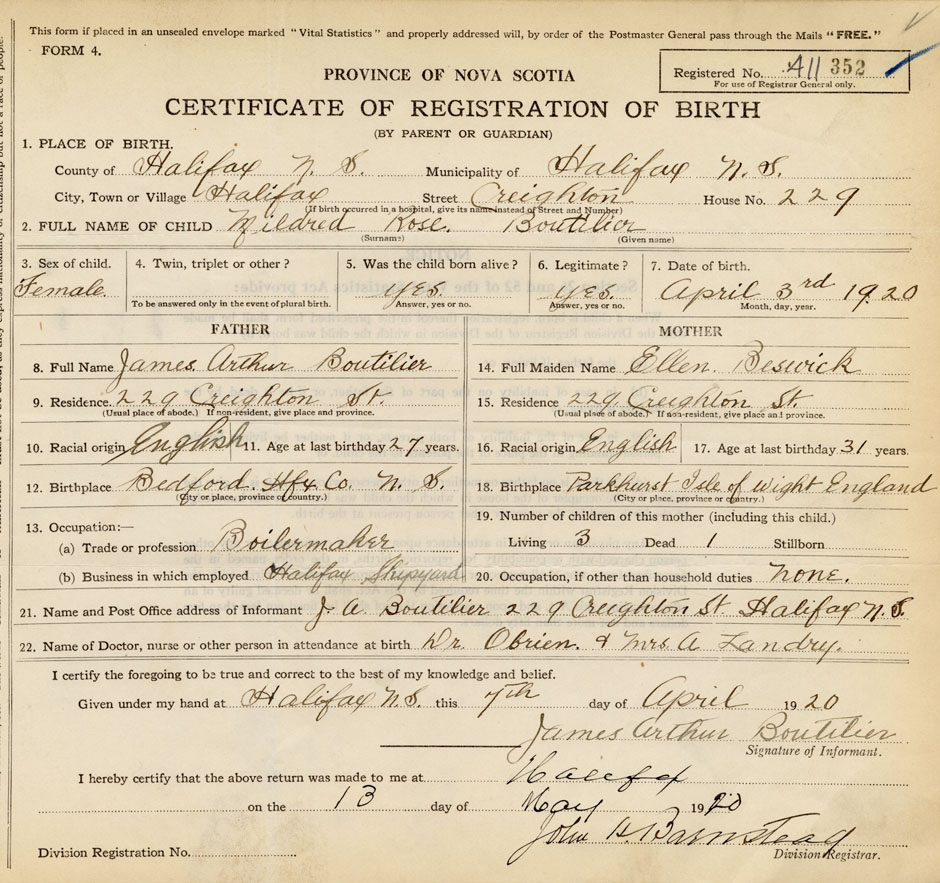 This form if placed in an unsealed envelope marked "Vital Statistics" and properly addressed will, by order of the Postmaster General pass through the Mails "FREE."
FORM 4.
Registered No. 411 352
For use of Registrar General only.
PROVINCE OF NOVA SCOTIA
CERTIFICATE OF REGISTRATION OF BIRTH
(BY PARENT OR GUARDIAN)
1. PLACE OF BIRTH.
County of Halifax N. S. Municipality of Halifax N. S.
City, Town or Village Halifax Street Creighton House No. 229
(If birth occurred in a hospital, give its name instead of Street and Number)
2. FULL NAME OF CHILD Mildred Rose. Boutilier
(Surname) (Given name)
3. Sex of child. 4. Twin, triplet or other? 5. Was the child born alive? 6. Legitimate? 7. Date of birth.
Female. yes. yes. April 3rd 1920
To be answered only in the event of plural birth. Answer, yes or no. Answer, yes or no. Month, day, year.
FATHER MOTHER
8. Full Name James Arthur Boutilier 14. Full Maiden Name Ellen. Beswick
9. Residence. 229 Creighton St. 15. Residence 229 Creighton St.
(Usual place of abode.) If non-resident, give place and province. (Usual place of abode.) If non-resident, give place and province.
10. Racial origin English 11. Age at last birthday 27 years. 16. Racial origin English 17. Age at last birthday 31 years.
12. Birthplace Bedford. Hfx Co. N. S. 18. Birthplace Parkhurst Isle of Wight England
(City or place, province or country.) (City or place, province or country.)
13. Occupation:— 19. Number of children of this mother (including this child.)
(a) Trade or profession Boilermaker Living 3 Dead 1 Stillborn
(b) Business in which employed Halifax Shipyard 20. Occupation, if other than household duties none.
21. Name and Post Office address of Informant J A Boutilier 229 Creighton St Halifax N. S.
22. Name of Doctor, nurse or other person in attendance at birth Dr. Obrien. & Mrs A Landry.
I certify the foregoing to be true and correct to the best of my knowledge and belief.
Given under my hand at Halifax N.S. this 7th day of April 1920
James Arthur Boutilier
Signature of Informant.
I hereby certify that the above return was made to me at Halifax
on the 13 day of May 1920
John H. Barnstead
Division Registration No. Division Registrar.